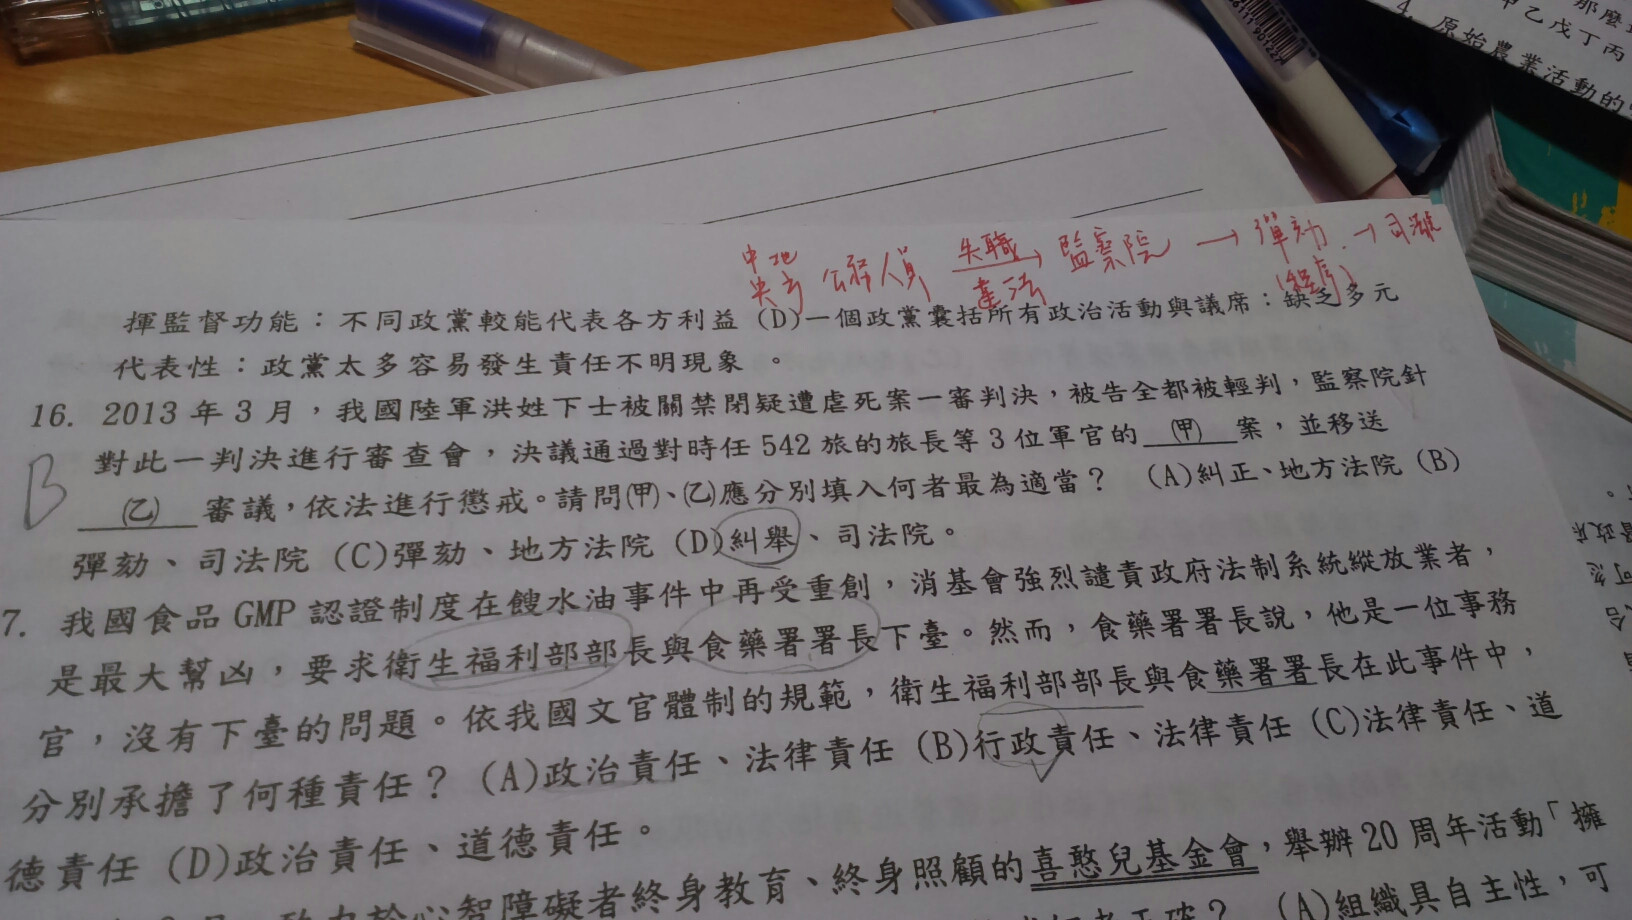 那麼
甲乙戊丁丙
4. 原始農業活動的
中央 地方 公務人員 失職 違法 → 監察院 → 彈劾 → 司法
(程序)
揮監督功能:不同政黨較能代表各方利益 (D)一個政黨囊括所有政治活動與議席:缺乏多元
代表性:政黨太多容易發生責任不明現象 。
16. 2013 年 3 月,我國陸軍洪姓下士被關禁閉疑遭虐死案一審判決,被告全都被輕判,監察院針
對此一判決進行審查會,決議通過對時任 542 旅的旅長等 3 位軍官的 (甲) 案,並移送
B (乙) 審議,依法進行懲戒。請問(甲)、(乙)應分別填入何者最為適當? (A)糾正、地方法院 (B)
彈劾、司法院 (C)彈劾、地方法院 (D)糾舉、司法院。
7. 我國食品 GMP 認證制度在餿水油事件中再受重創,消基會強烈譴責政府法制系統縱放業者,
是最大幫凶,要求衛生福利部部長與食藥署署長下臺。然而,食藥署署長說,他是一位事務
官,沒有下臺的問題。依我國文官體制的規範,衛生福利部部長與食藥署署長在此事件中,
分別承擔了何種責任? (A)政治責任、法律責任 (B)行政責任、法律責任 (C)法律責任、道
德責任 (D)政治責任、道德責任。
心智障礙者終身教育、終身照顧的喜憨兒基金會,舉辦 20 周年活動「擁
(A)組織具自主性,可